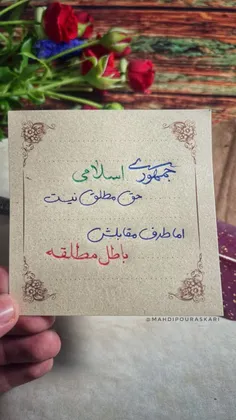 جمهوری اسلامی
حق مطلق نیست
اما طرف مقابلش
باطل مطلقه
@MAHDIPOURASKARI